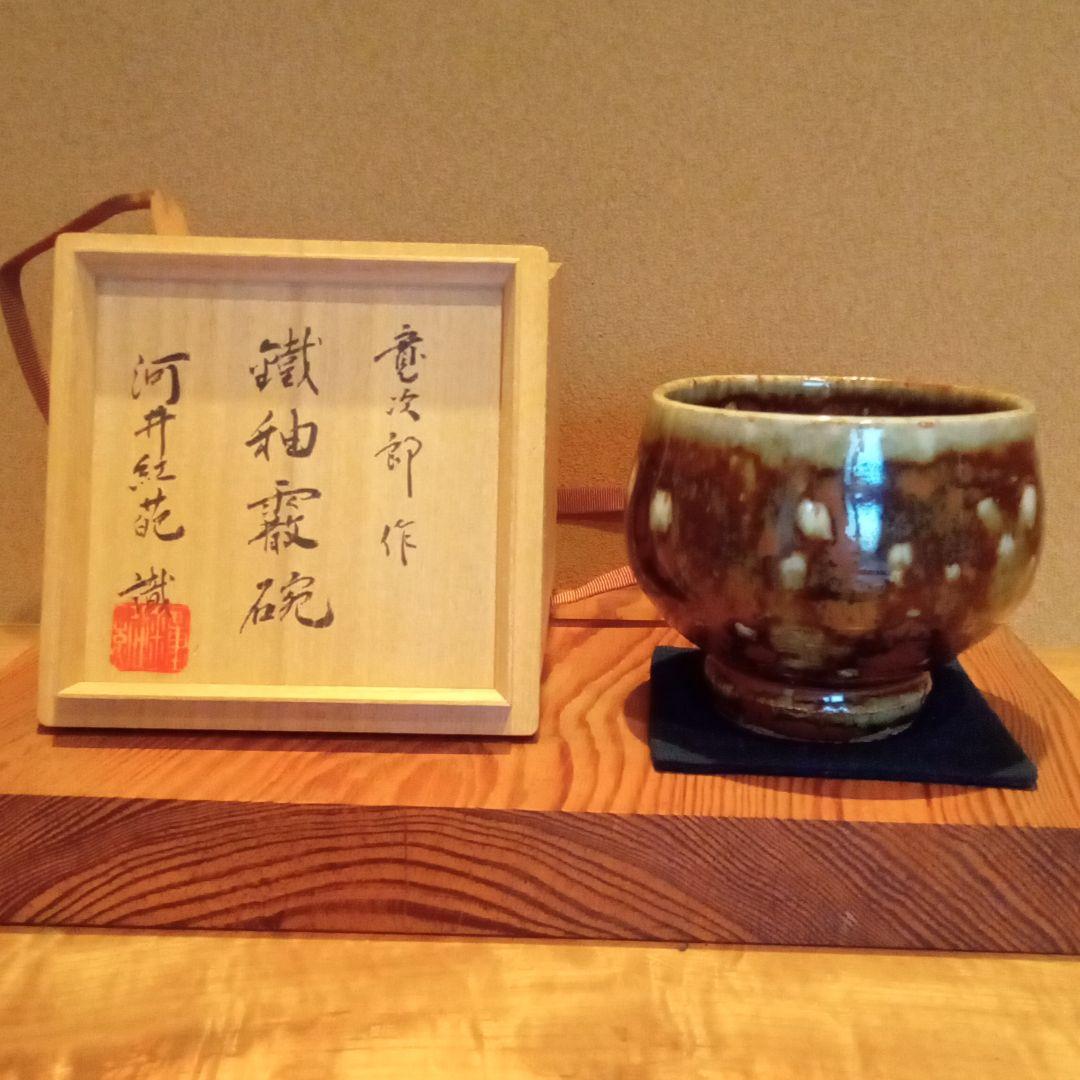 寛次郎 作
鐵秞霰碗
河井紅葩 識